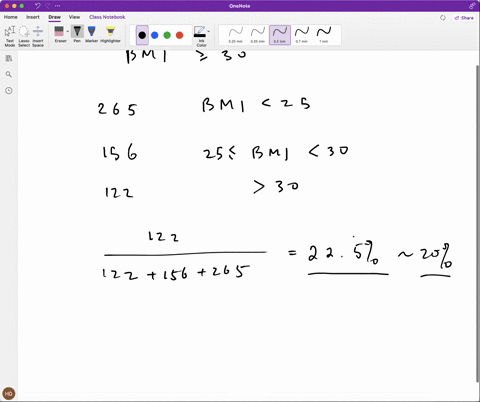 OneNote
Home Insert Draw View Class Notebook
Share
Text Mode Lasso Select Insert Space Eraser Pen Marker Highlighter Ink Color 0.25 mm 0.35 mm 0.5 mm 0.7 mm 1 mm
BMI ≥ 30
265 BMI < 25
156 25 ≤ BMI < 30
122 > 30
122
122 + 156 + 265
= 22.5% ~ 20%
HD